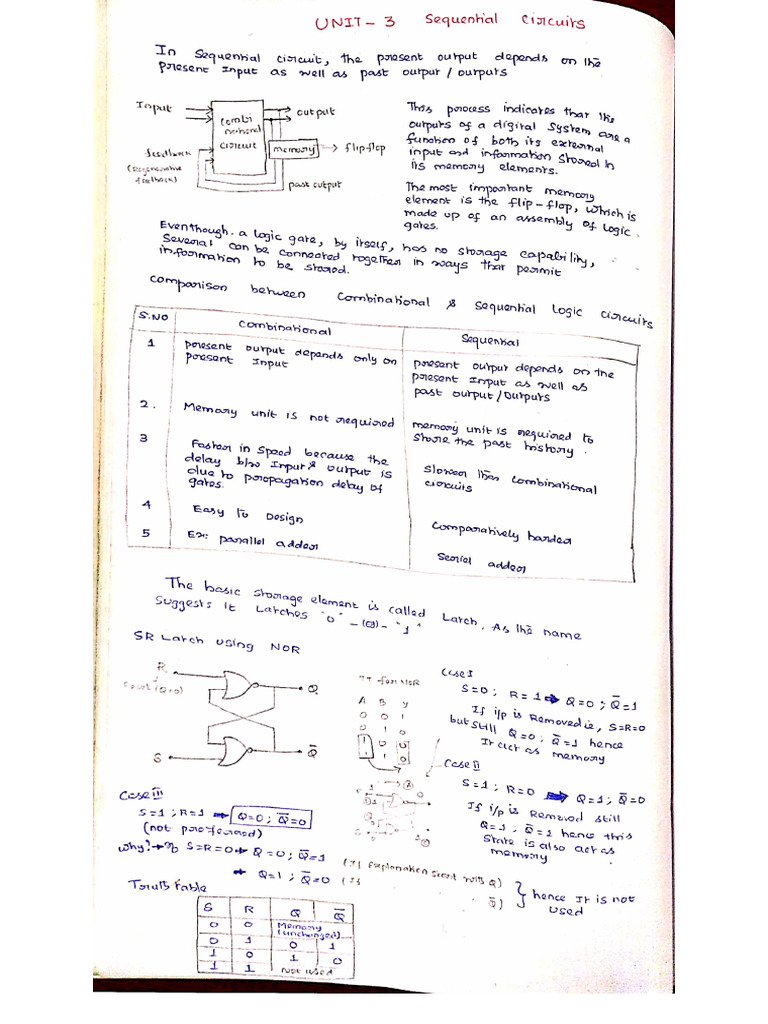 UNIT-3 Sequential Circuits
In Sequential circuit, the present output depends on the
present Input as well as past output / outputs
Input
combi
national
circuit
output
memory
flipflop
feedback
(Regenerative
feedback)
past output
This process indicates that the
outputs of a digital System are a
function of both its external
input and information stored in
its memory elements.
The most important memory
element is the flip-flop, which is
made up of an assembly of logic
gates.
Eventhough a logic gate, by itself, has no storage capability,
Several can be connected together in ways that permit
information to be stored.
Comparison between Combinational & Sequential Logic Circuits
S.NO Combinational Sequential
1 present output depends only on
present Input
present output depends on the
present Input as well as
past output / outputs
2. Memory unit is not required
memory unit is required to
store the past history.
3 Faster in Speed because the
delay b/w Input & output is
due to propagation delay of
gates.
Slower than combinational
circuits
4 Easy to Design
Comparatively harder
5 Ex: parallel adder
Serial adder
The basic storage element is called Latch. As the name
Suggests it Latches "0" - (or) - "1"
SR Latch using NOR
R
(Q=0)
Q
S
Q̅
TT for NOR
A B Y
0 0 1
0 1 0
1 0 0
1 1 0
Case I
S=0; R=1 ➡ Q=0; Q̅=1
If i/p is Removed ie, S=R=0
but still Q=0; Q̅=1 hence
It act as memory
Case II
S=1; R=0 ➡ Q=1; Q̅=0
If i/p is Removed still
Q=1; Q̅=1 hence this
State is also act as
memory
Case III
S=1; R=1 ➡ Q=0; Q̅=0
(not preferred)
why? → If S=R=0 → Q=0; Q̅=1
→ Q=1; Q̅=0
(If Explanation start with Q)
(If Q̅)
hence It is not
used
Truth table
S R Q Q̅
0 0 Memory
(unchanged)
0 1 0 1
1 0 1 0
1 1 Not used